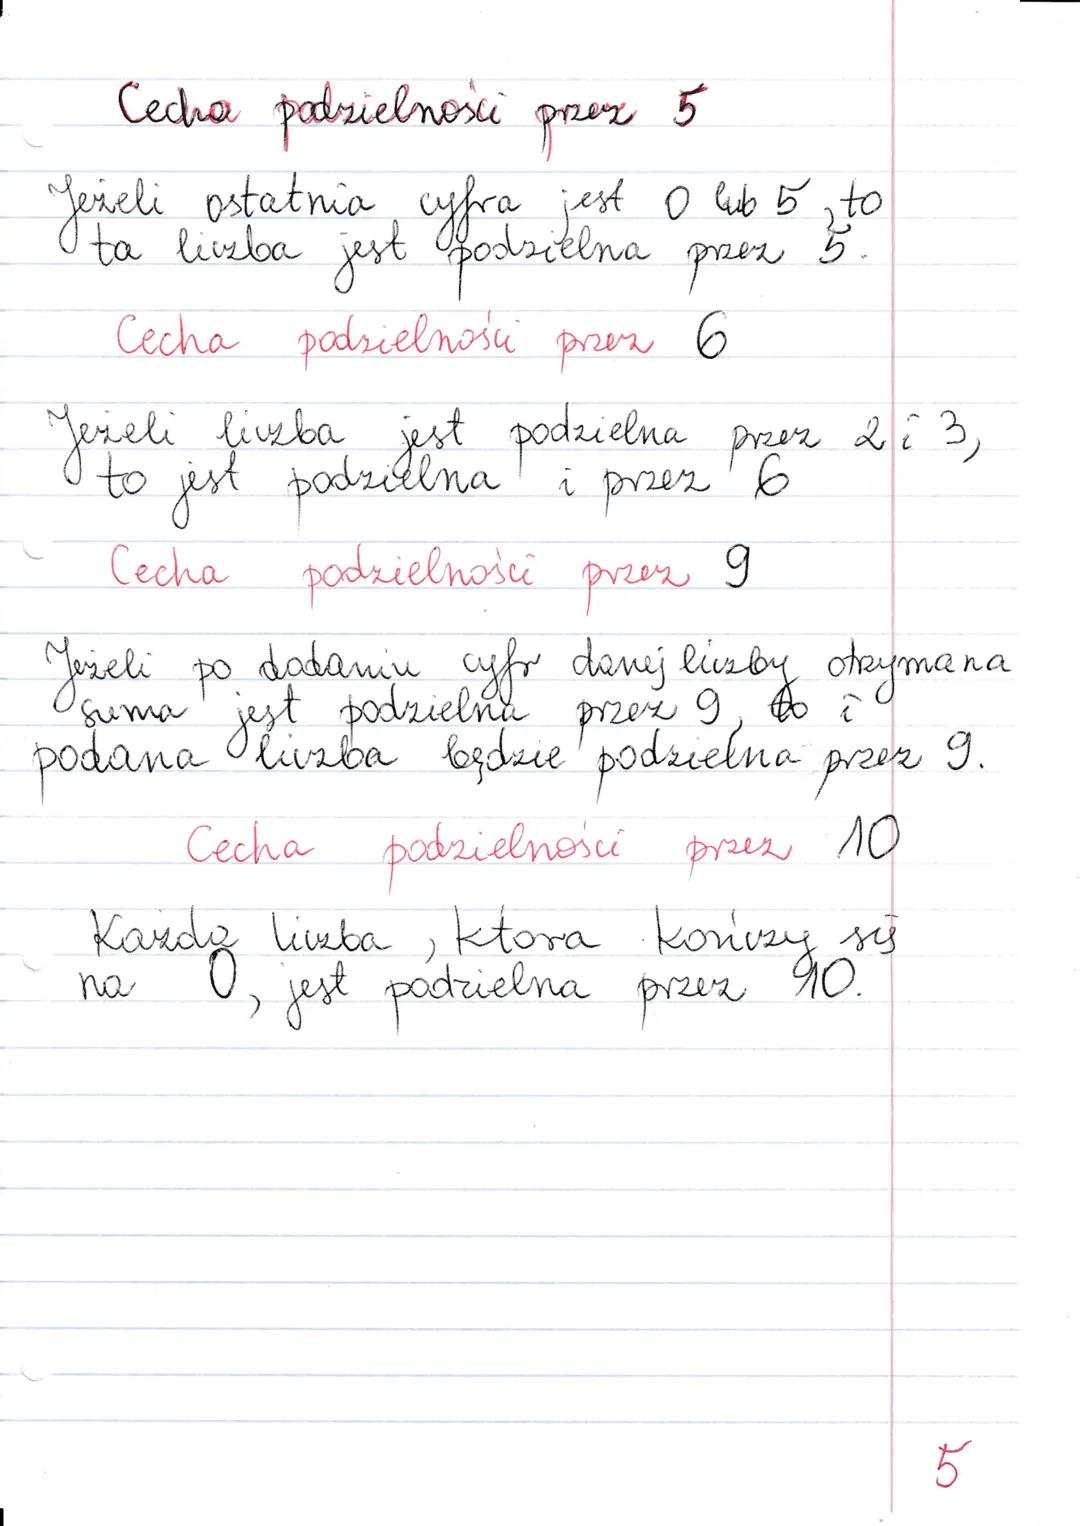 Cecha podzielności przez 5
Jeżeli ostatnia cyfra jest 0 lub 5, to
ta liczba jest podzielna przez 5.
Cecha podzielności przez 6
Jeżeli liczba jest podzielna przez 2 i 3,
to jest podzielna i przez 6
Cecha podzielności przez 9
Jeżeli po dodaniu cyfr danej liczby otrzymana
suma jest podzielna przez 9, to i
podana liczba będzie podzielna przez 9.
Cecha podzielności przez 10
Każda liczba, ktora kończy się
na 0, jest podzielna przez 10.
5